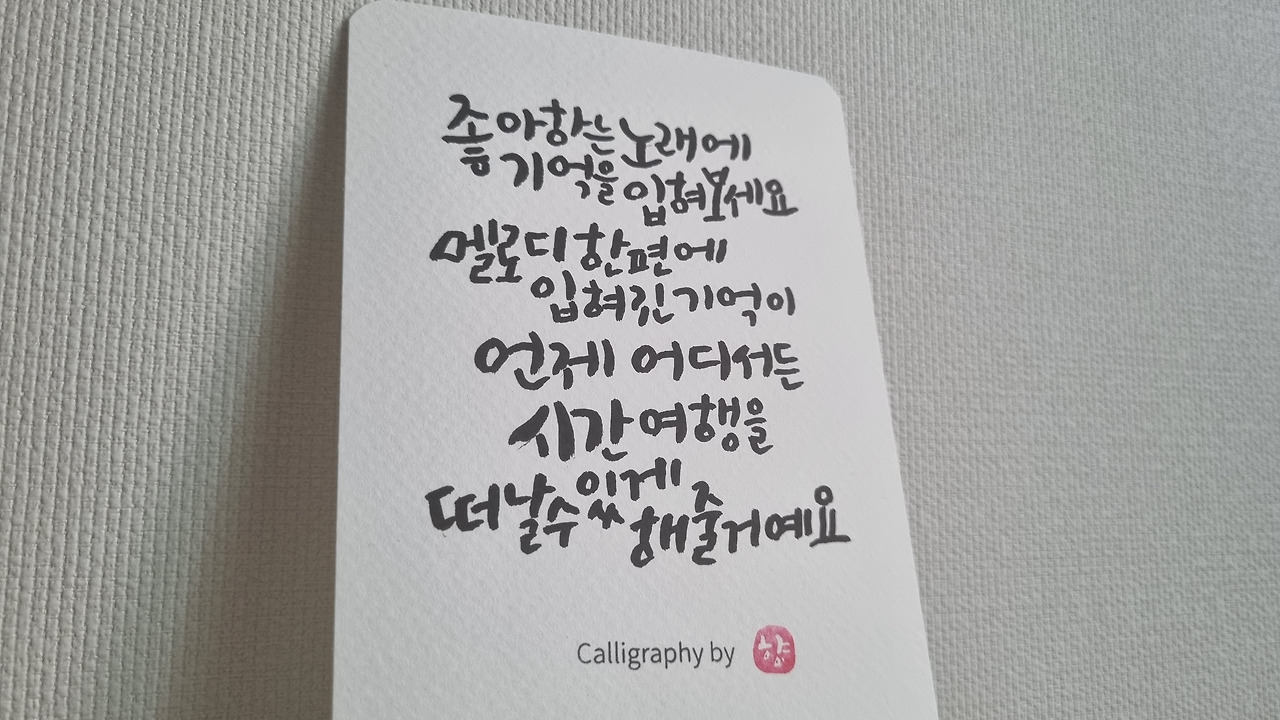 좋아하는 노래에
기억을 입혀보세요
멜로디 한편에
입혀진 기억이
언제 어디서든
시간여행을
떠날수있게
해줄거예요
Calligraphy by